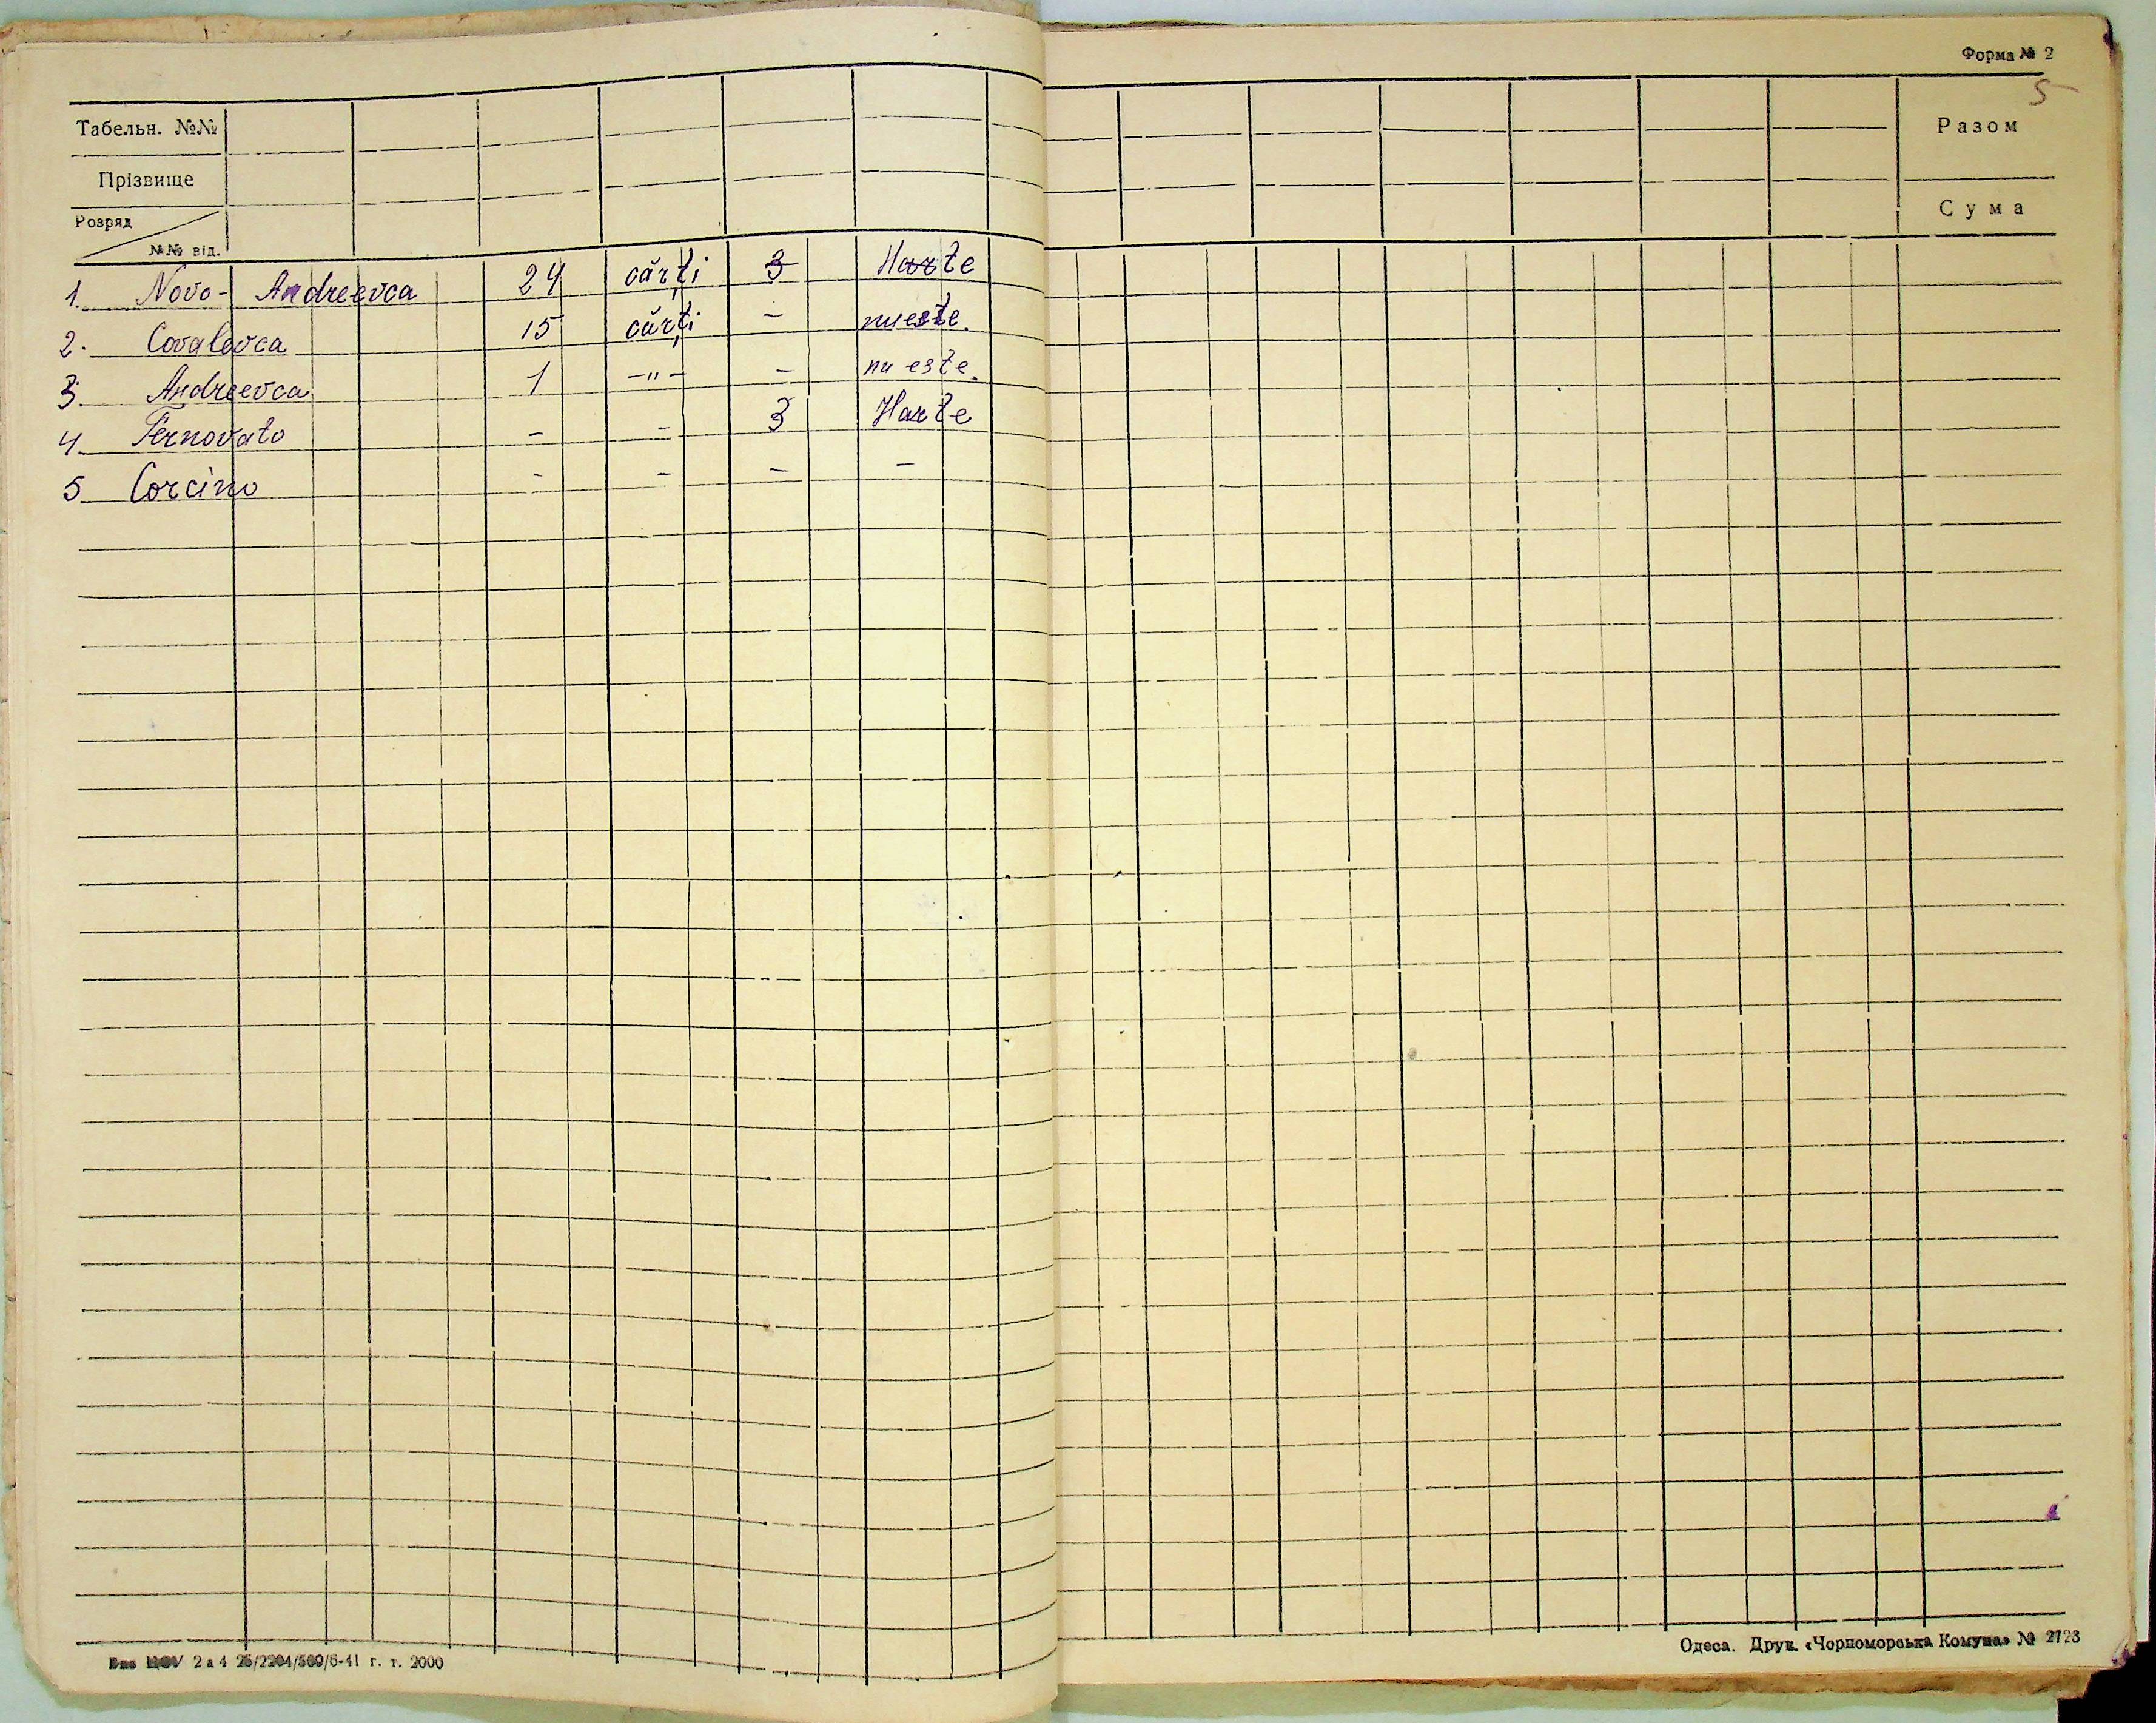 Форма № 2
5
Табельн. №№
Разом
Прізвище
Розряд
Сума
№№ від.
1. Novo- Andreevca 24 cărți 3 Harte
2. Covalevca 15 cărți - nu este.
3. Andreevca 1 -"- - nu este.
4. Fernovato - - 3 Harte
5 Corcino - - - -
2 а 4 25/2204/500/6-41 г. т. 2000
Одеса. Друк. «Чорноморська Комуна» № 2723